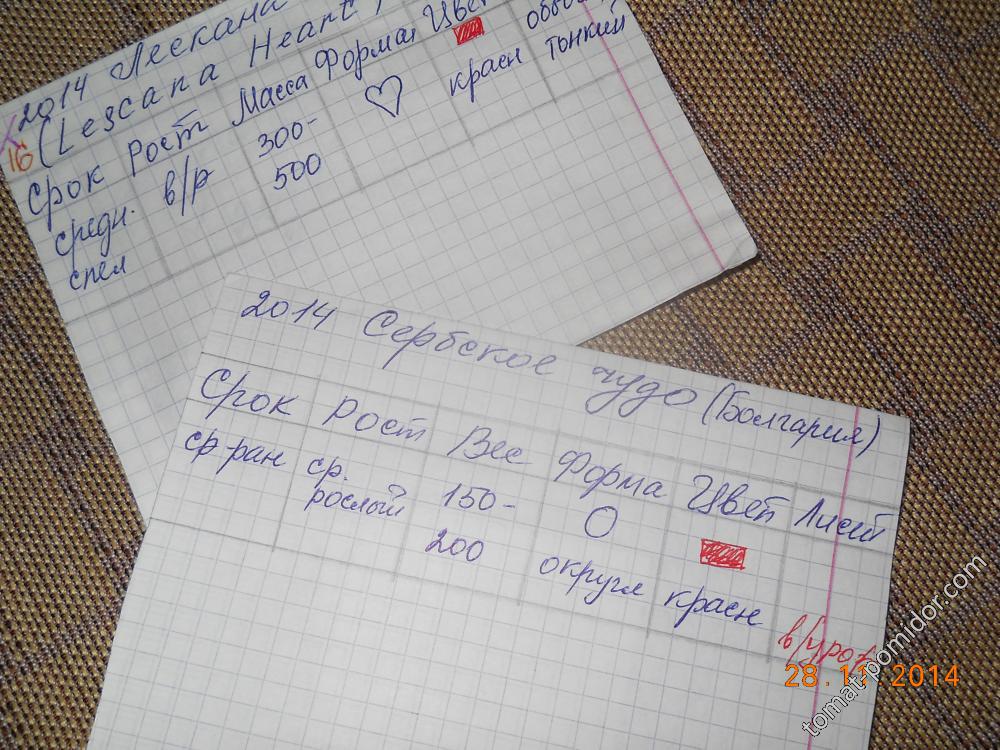 2014 Лескана
16 (Lescana Heart)
Срок Рост Масса Форма Цвет
средн. спел в/р 300-500 красн тонкий
2014 Сербское чудо (Болгария)
Срок Рост Вес Форма Цвет Лист
ср ран ср. рослый 150-200 округл красн
в/урож
28.11.2014
tomat-pomidor.com